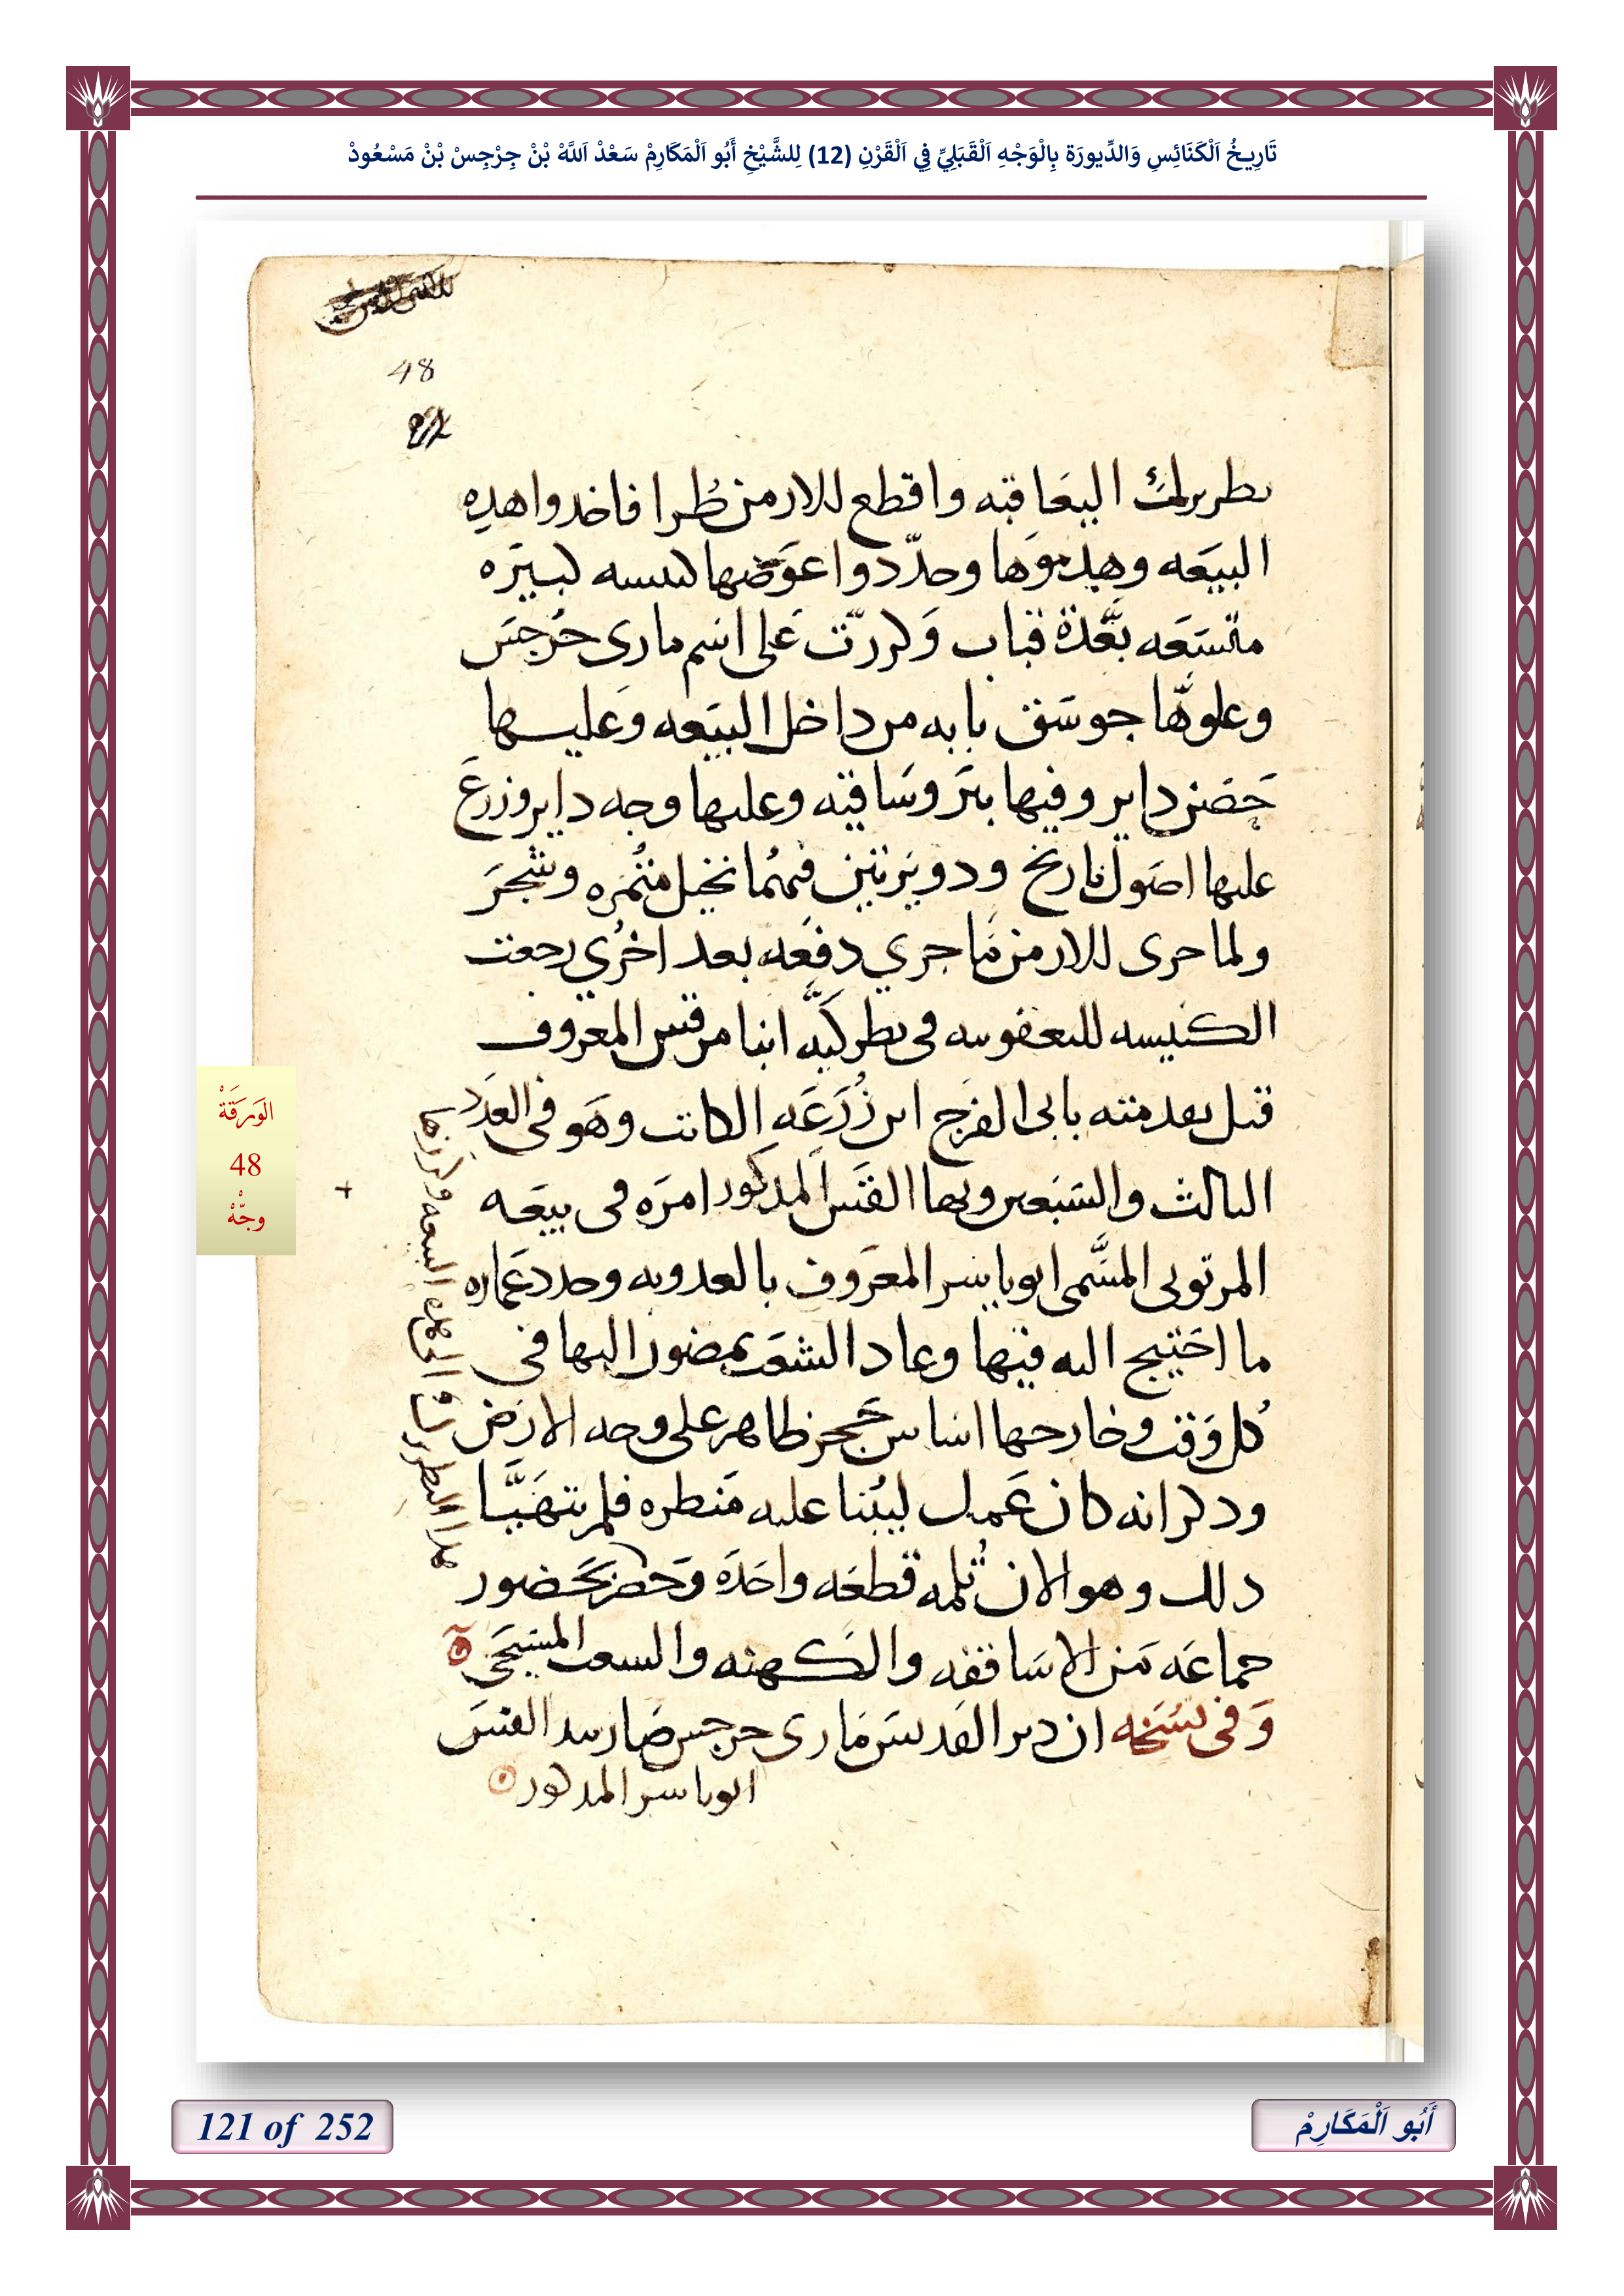 تَارِيخُ اَلْكَنَائِسِ وَالدِّيورَة بِالْوَجْهِ اَلْقَبَلِيِّ فِي اَلْقَرْنِ (12) لِلشَّيْخِ أَبُو اَلْمَكَارِمْ سَعْدْ اَللَّهْ بْنْ جِرْجِسْ بْنْ مَسْعُودْ
48
بطريرك اليعاقبه واقطع للارمن طُرا فاخدوا هده
البيعه وهدموها وجدّدوا عوضها كنيسه كبيره
متسعه بعّدة قباب وكررّت على اسم مارى جرجس
وعلوّها جوسق بابه من داخل البيعه وعليها
حصن داير وفيها بير وساقيه وعليها وجه داير وزرع
عليها اصول نارنج ودويرتين فيهما نخيل مثمره وشجر
ولما جرى للارمن ما جري دفعه بعد اخري رجعت
الكنيسه لليعقوبيه فى بطركيّه انبا مرقس المعروف
قبل تقدمته بابى الفرج ابن زُرعه الكاتب وهو فى العدد
التالث والسبعين وبها القس المدكور امره فى بيعه
المرتوتى المسَّمى ابو ياسر المعروف بالعدويه وجدد عماره
ما احتيج اليه فيها وعاد الشعب يمضون اليها فى
كل وقت وخارجها اساس حجر ظاهر على وجه الارض
ودكر انه كان عمل ليبنا عليه منطره فلم يتهيّا
دلك وهو الان ثلمه قطعه واحده وحضر بحضور
جماعه من الاساقفه والكهنه والشعب المسيحى
وفى نسخه ان دير القديس مارى جرجس صار بيد القس
ابو ياسر المدكور
هدا البطريرك الى هده البيعه وكرزها
الوَرَقَةْ
48
وجّهْ
121 of 252
أَبُو اَلْمَكَارِمْ